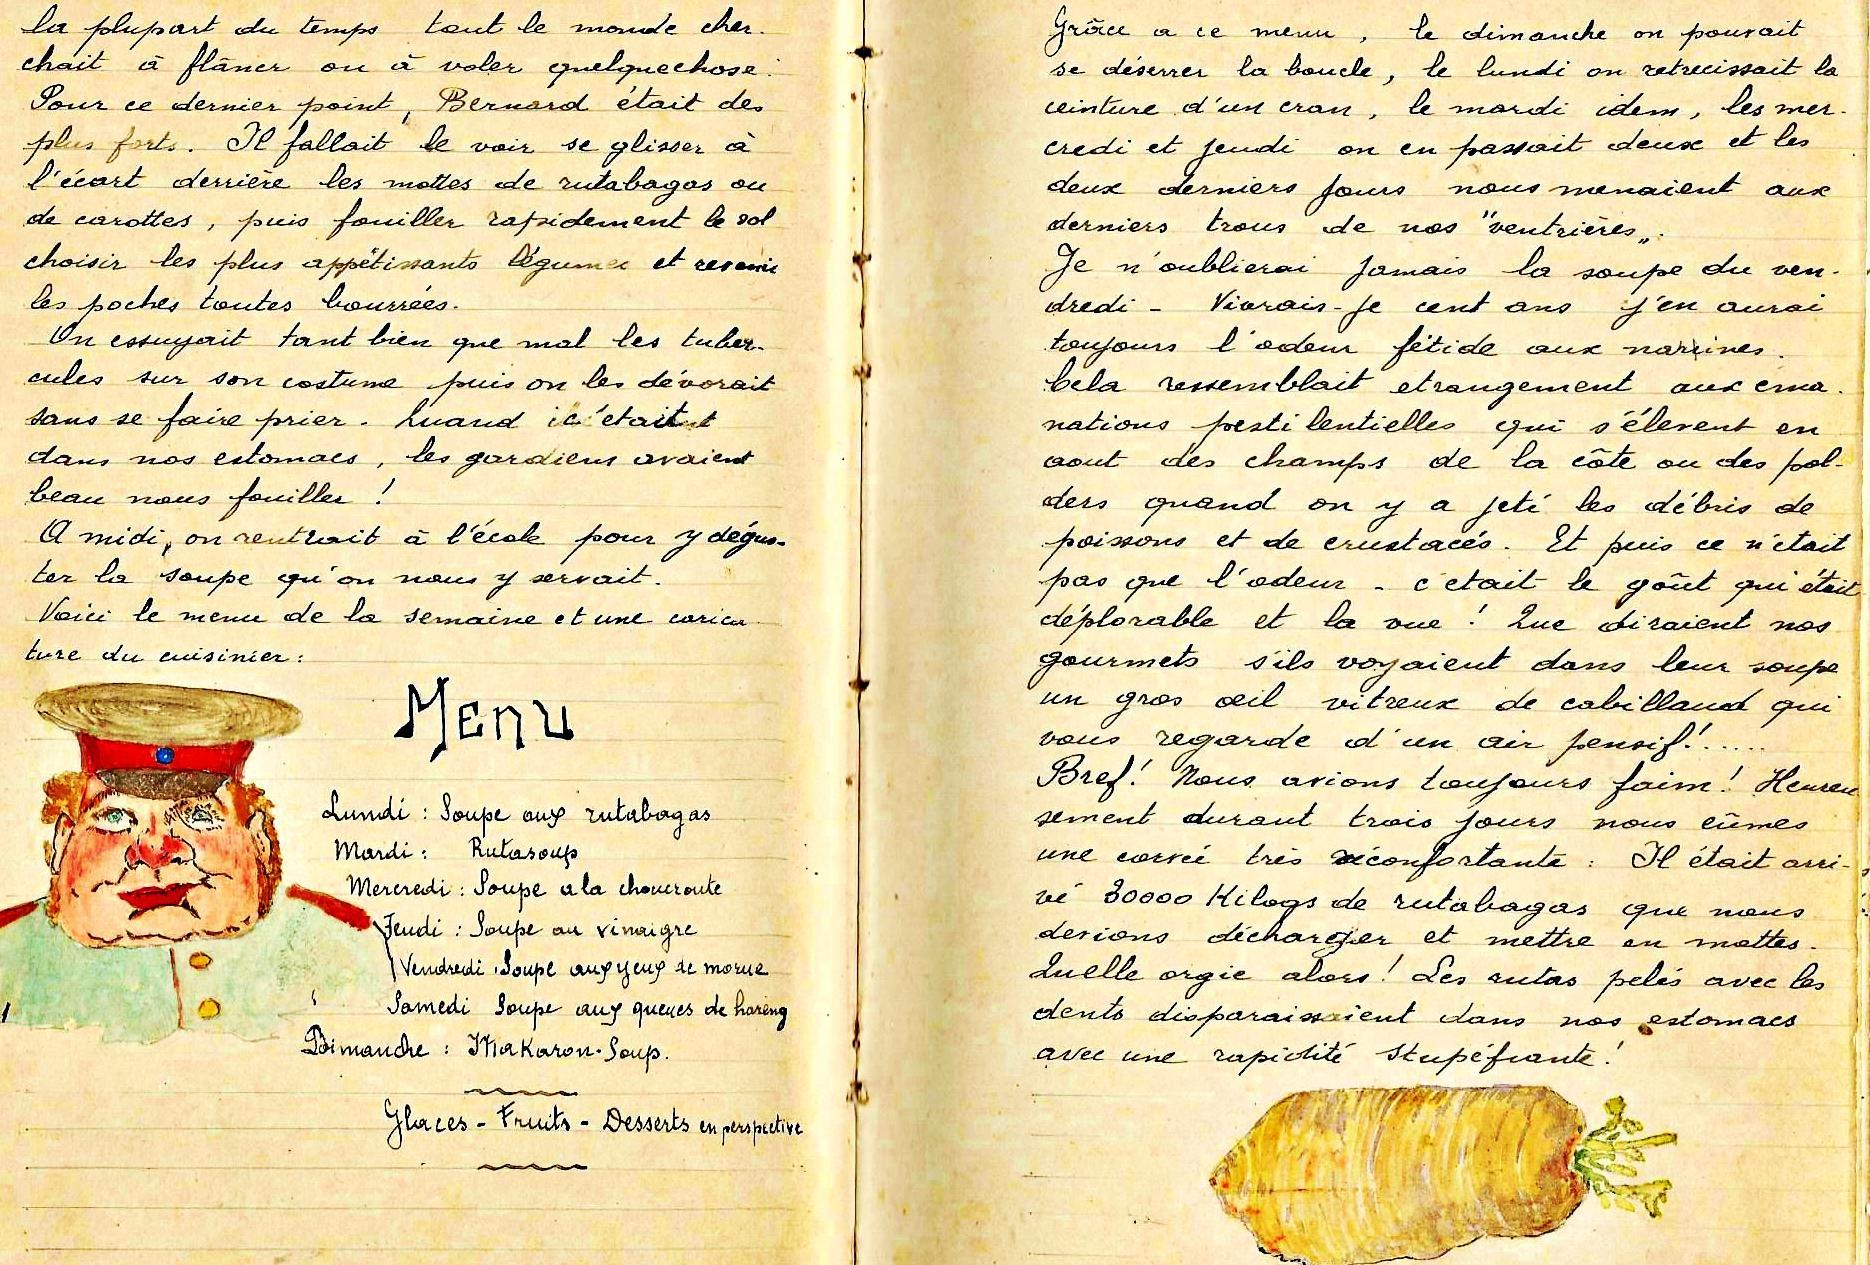 la plupart du temps tout le monde cher-
chait à flâner ou à voler quelquechose.
Pour ce dernier point, Bernard était des
plus forts. Il fallait le voir se glisser à
l'écart derrière les mottes de rutabagas ou
de carottes, puis fouiller rapidement le sol
choisir les plus appétissants légumes et revenir
les poches toutes bourrées.
On essuyait tant bien que mal les tuber-
cules sur son costume puis on les dévorait
sans se faire prier. Quand c'était
dans nos estomacs, les gardiens avaient
beau nous fouiller !
A midi, on rentrait à l'école pour y dégus-
ter la soupe qu'on nous y servait.
Voici le menu de la semaine et une carica-
ture du cuisinier :
Menu
Lundi : Soupe aux rutabagas
Mardi : Rutasoup
Mercredi : Soupe a la choucroute
Jeudi : Soupe au vinaigre
Vendredi : Soupe aux yeux de morue
Samedi Soupe aux queues de hareng
Dimanche : Makaron-Soup.
Glaces - Fruits - Desserts en perspective
Grâce a ce menu, le dimanche on pouvait
se désserrer la boucle, le lundi on retrecissait la
ceinture d'un cran, le mardi idem, les mer-
credi et jeudi on en passait deux et les
deux derniers jours nous menaient aux
derniers trous de nos "ventrières".
Je n'oublierai jamais la soupe du ven-
dredi - Vivrais-je cent ans j'en aurai
toujours l'odeur fétide aux narines.
Cela ressemblait etrangement aux éma-
nations pestilentielles qui s'élevent en
aout des champs de la côte ou des pol-
ders quand on y a jeté les débris de
poissons et de crustacés. Et puis ce n'était
pas que l'odeur - c'etait le goût qui était
déplorable et la vue ! Que diraient nos
gourmets s'ils voyaient dans leur soupe
un gros œil vitreux de cabillaud qui
vous regarde d'un air pensif!.....
Bref! Nous avions toujours faim! Heureu
sement durant trois jours nous eûmes
une corvée très réconfortante : Il était arri-
vé 30000 Kilogs de rutabagas que nous
devions décharger et mettre en mottes.
Quelle orgie alors! Les rutas pelés avec les
dents disparaissaient dans nos estomacs
avec une rapidité stupéfiante!